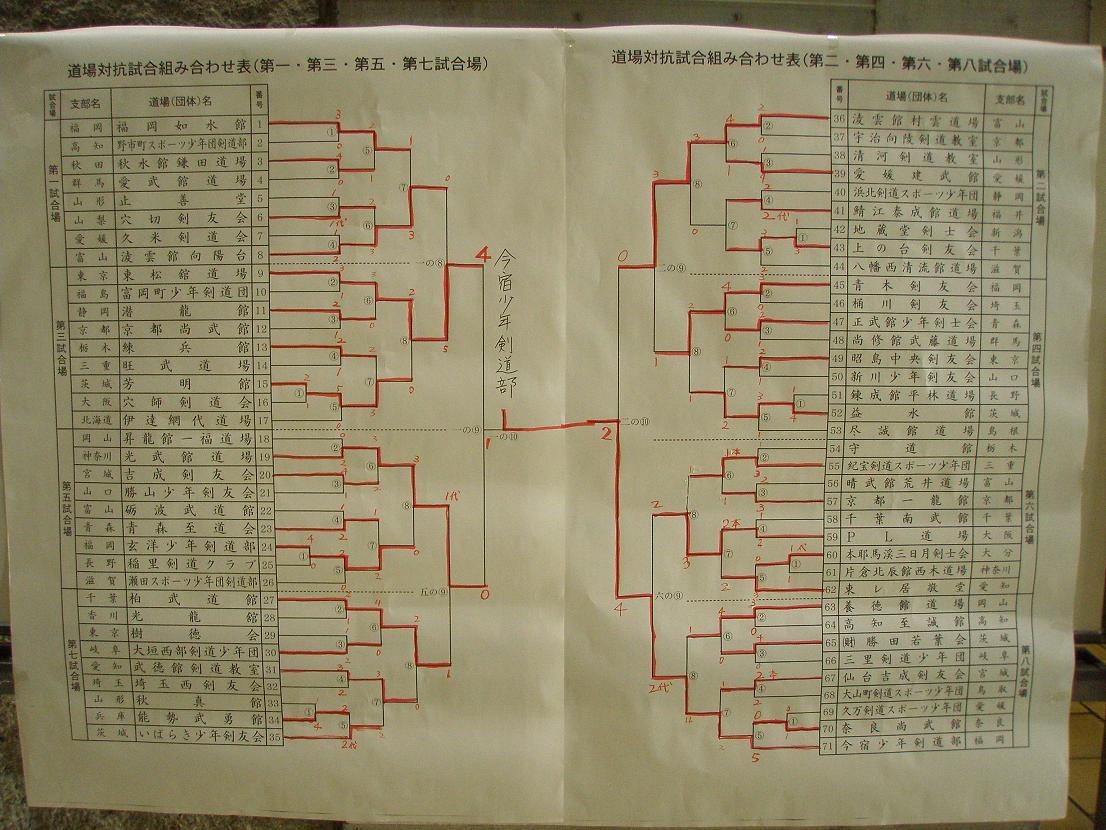 道場対抗試合組み合わせ表(第一・第三・第五・第七試合場)
試合場 支部名 道場(団体)名 番号
第一試合場
福岡 福岡如水館 1
高知 野市町スポーツ少年団剣道部 2
秋田 秋水館鎌田道場 3
群馬 愛武館道場 4
山形 止善堂 5
山梨 穴切剣友会 6
愛媛 久米剣道会 7
富山 淩雲館向陽台 8
第三試合場
東京 東松館道場 9
福島 富岡町少年剣道団 10
静岡 潜龍館 11
京都 京都尚武館 12
栃木 練兵館 13
三重 旺武道場 14
茨城 芳明館 15
大阪 穴師剣道会 16
北海道 伊達網代道場 17
第五試合場
岡山 昇龍館一福道場 18
神奈川 光武館道場 19
宮城 吉成剣友会 20
山口 勝山少年剣友会 21
富山 砺波武道館 22
青森 青森至道会 23
福岡 玄洋少年剣道部 24
長野 稲里剣道クラブ 25
滋賀 瀬田スポーツ少年団剣道部 26
第七試合場
千葉 柏武道館 27
香川 光龍館 28
東京 樹徳会 29
岐阜 大垣西部剣道少年団 30
愛知 武徳館剣道教室 31
埼玉 埼玉西剣友会 32
山形 秋真館 33
兵庫 能勢武勇館 34
茨城 いばらき少年剣友会 35
一の⑧
一の⑨
一の⑩
五の⑨
今宿少年剣道部
道場対抗試合組み合わせ表(第二・第四・第六・第八試合場)
番号 道場(団体)名 支部名 試合場
第二試合場
36 淩雲館村雲道場 富山
37 宇治向陵剣道教室 京都
38 清河剣道教室 山形
39 愛媛建武館 愛媛
40 浜北剣道スポーツ少年団 静岡
41 鯖江泰成館道場 福井
42 地蔵堂剣士会 新潟
43 上の台剣友会 千葉
44 八幡西清流館道場 滋賀
第四試合場
45 青木剣友会 福岡
46 桶川剣友会 埼玉
47 正武館少年剣士会 青森
48 尚修館武藤道場 群馬
49 昭島中央剣友会 東京
50 新川少年剣友会 山口
51 錬成館平林道場 長野
52 益水館 茨城
53 尽誠館道場 島根
第六試合場
54 守道館 栃木
55 紀宝剣道スポーツ少年団 三重
56 晴武館荒井道場 富山
57 京都一龍館 京都
58 千葉南武館 千葉
59 PL道場 大阪
60 本耶馬渓三日月剣士会 大分
61 片倉北辰館西木道場 神奈川
62 東レ居敬堂 愛知
第八試合場
63 養徳館道場 岡山
64 高知至誠館 高知
65 (財)勝田若葉会 茨城
66 三里剣道少年団 岐阜
67 仙台吉成剣友会 宮城
68 大山町剣道スポーツ少年団 鳥取
69 久万剣道スポーツ少年団 愛媛
70 奈良尚武館 奈良
71 今宿少年剣道部 福岡
二の⑨
二の⑩
六の⑨